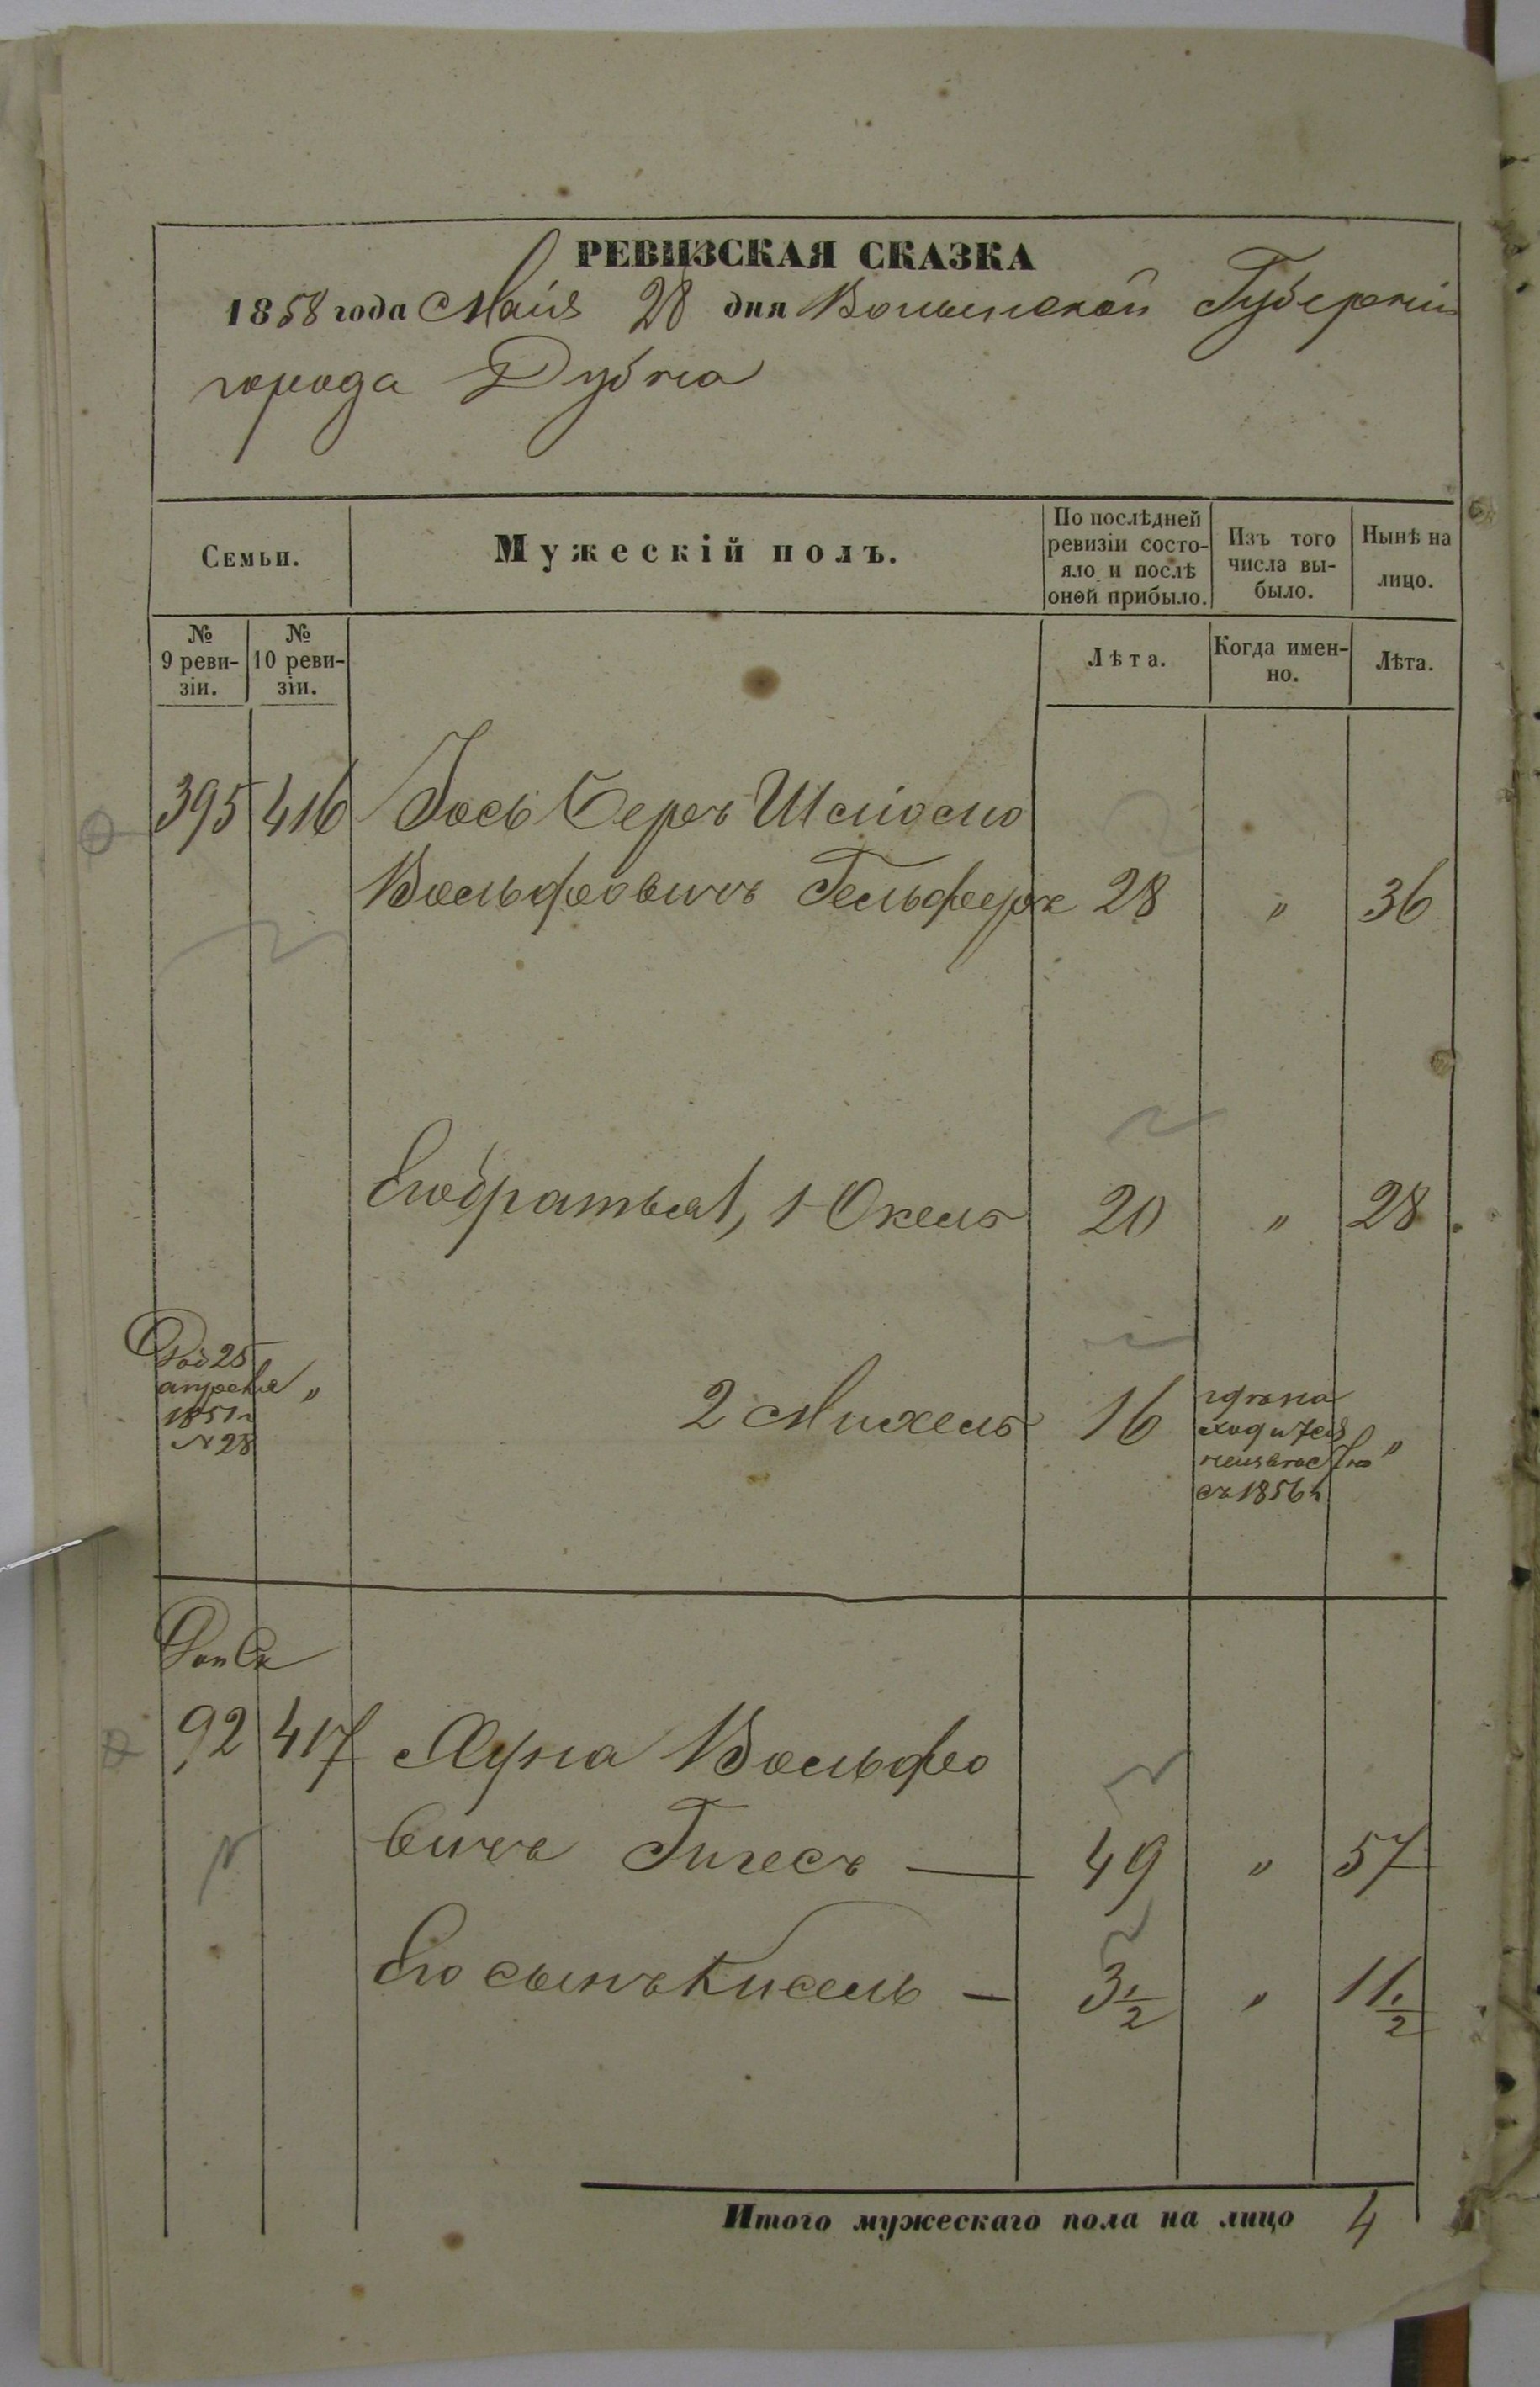 РЕВИЗСКАЯ СКАЗКА
1858 года Маія 28 дня Волынской Губерніи
города Дубна
Семьи.
Мужескій полъ.
По послѣдней ревизіи состо-
яло и послѣ
оной прибыло.
Изъ того
числа вы-
было.
Нынѣ на
лицо.
№
9 реви-
зіи.
№
10 реви-
зіи.
Лѣта.
Когда имен-
но.
Лѣта.
395 416 Іось Беръ Шліомо
Вольфовичъ Гельферъ 28 " 36
Его братья, 1 Окель 20 " 28
25
апреля "
1851 г
№ 28
2 Михель 16 гдѣ на
ходится
неизвѣстно "
съ 1856 г
92 417 Луна Вольфо
вичъ 49 " 57
Его сынъ Кисель — 3 1/2 " 11 1/2
Итого мужескаго пола на лицо 4